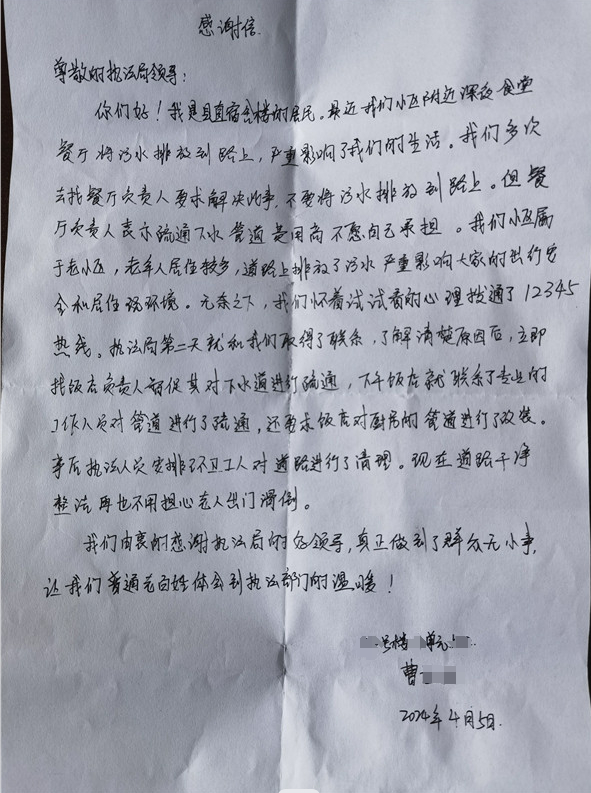 感谢信
尊敬的执法局领导：
你们好！我是县直宿舍楼的居民。最近我们小区附近深夜食堂
餐厅将污水排放到路上，严重影响了我们的生活。我们多次
去找餐厅负责人要求解决此事，不要将污水排放到路上。但餐
厅负责人表示疏通下水管道费用高不愿自己承担。我们小区属
于老小区，老年人居住较多，道路上排放了污水严重影响大家的出行安
全和居住环境。无奈之下，我们怀着试试看的心理拨通了12345
热线。执法局第二天就和我们取得了联系，了解清楚原因后，立即
找饭店负责人督促其对下水道进行疏通，下午饭店就联系了专业的
工作人员对管道进行了疏通，还要求饭店对厨房的管道进行了改装。
事后执法人员安排了环卫工人对道路进行了清理。现在道路干净
整洁再也不用担心老人出门滑倒。
我们由衷的感谢执法局的好领导，真正做到了群众无小事，
让我们普通老百姓体会到执法部门的温暖！
号楼 单元
曹
2024年4月5日